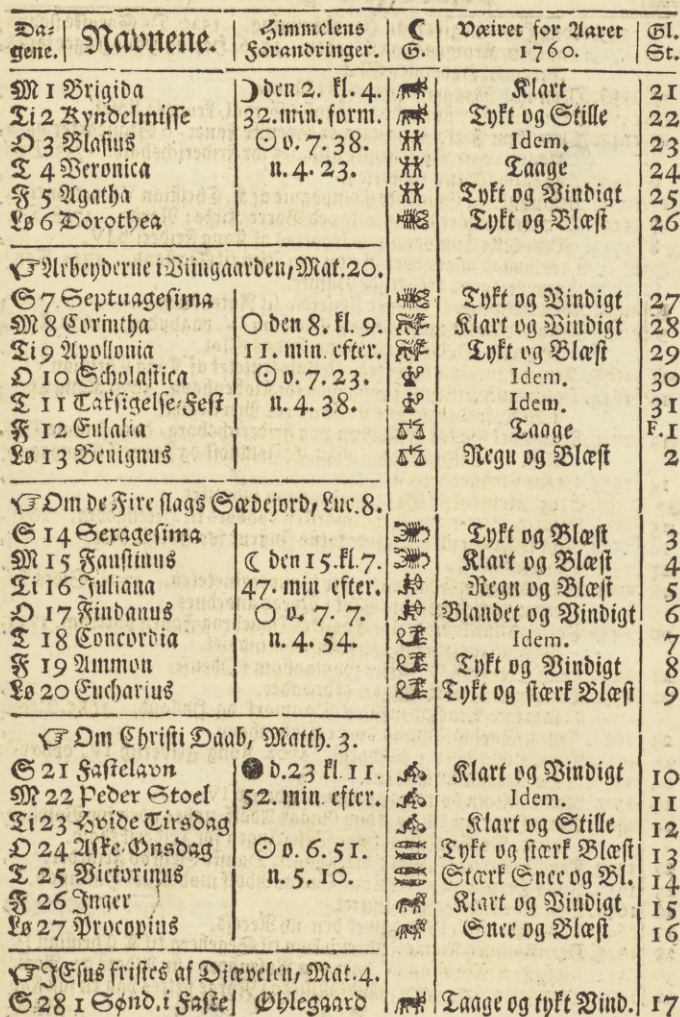 Da= gene. Navnene. Himmelens Forandringer. ☾ G. Væiret for Aaret 1760. Gl. St.
M 1 Brigida ☽ den 2. kl. 4. Klart 21
Ti 2 Kyndelmisse 32. min. form. Tykt og Stille 22
O 3 Blasius ☉ o. 7. 38. Idem. 23
T 4 Veronica n. 4. 23. Taage 24
F 5 Agatha Tykt og Vindigt 25
Lø 6 Dorothea Tykt og Blæst 26
☞ Arbeyderne i Viingaarden, Mat. 20.
S 7 Septuagesima Tykt og Vindigt 27
M 8 Corintha ○ den 8. kl. 9. Klart og Vindigt 28
Ti 9 Apollonia 11. min. efter. Tykt og Blæst 29
O 10 Scholastica ☉ o. 7. 23. Idem. 30
T 11 Taksigelse-Fest n. 4. 38. Idem. 31
F 12 Eulalia Taage F. 1
Lø 13 Benignus Regn og Blæst 2
☞ Om de Fire slags Sædejord, Luc. 8.
S 14 Sexagesima Tykt og Blæst 3
M 15 Faustinus ☾ den 15. kl. 7. Klart og Blæst 4
Ti 16 Juliana 47. min efter. Regn og Blæst 5
O 17 Findanus ○ o. 7. 7. Blandet og Vindigt 6
T 18 Concordia n. 4. 54. Idem. 7
F 19 Ammon Tykt og Vindigt 8
Lø 20 Eucharius Tykt og stærk Blæst 9
☞ Om Christi Daab, Matth. 3.
S 21 Fastelavn ● d. 23 kl 11. Klart og Vindigt 10
M 22 Peder Stoel 52. min. efter. Idem. 11
Ti 23 Hvide Tirsdag Klart og Stille 12
O 24 Aske-Onsdag ☉ o. 6. 51. Tykt og stærk Blæst 13
T 25 Victorinus n. 5. 10. Stærk Snee og Bl. 14
F 26 Inger Klart og Vindigt 15
Lø 27 Procopius Snee og Blæst 16
☞ JEsus fristes af Diævelen, Mat. 4.
S 28 1 Sønd. i Faste Øhlegaard Taage og tykt Vind. 17